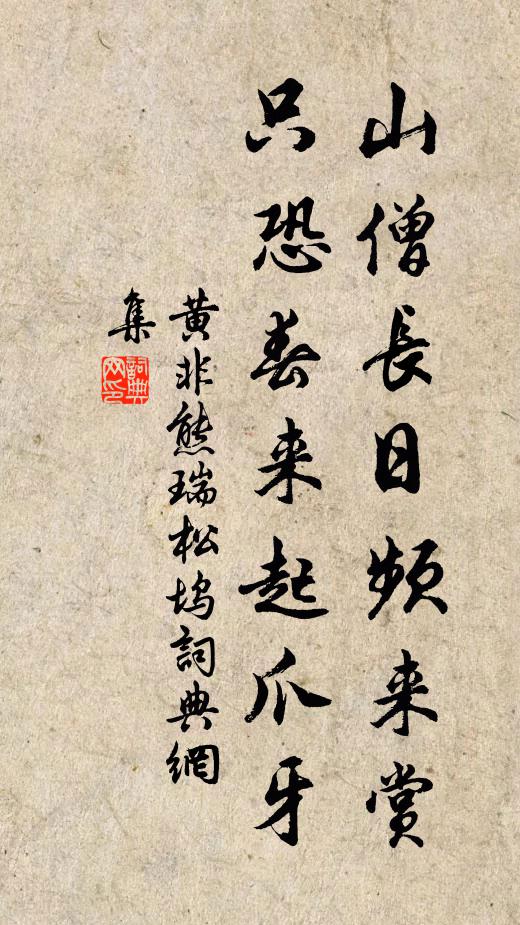 山僧長日頻来賞
只恐春来起爪牙
黄非熊瑞松塢詞典網
集
詞典网印